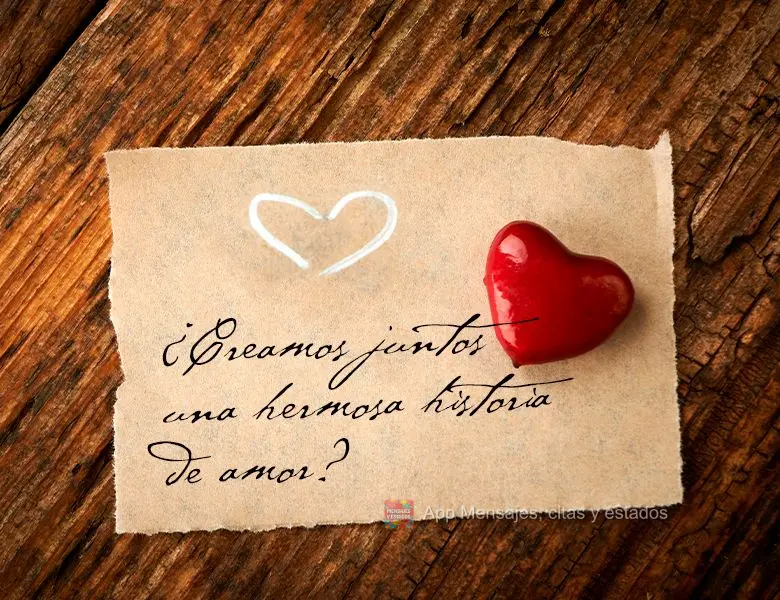 ¿Creamos juntos
una hermosa historia
de amor?
MENSAJES
Y ESTADOS
App Mensajes, citas y estados